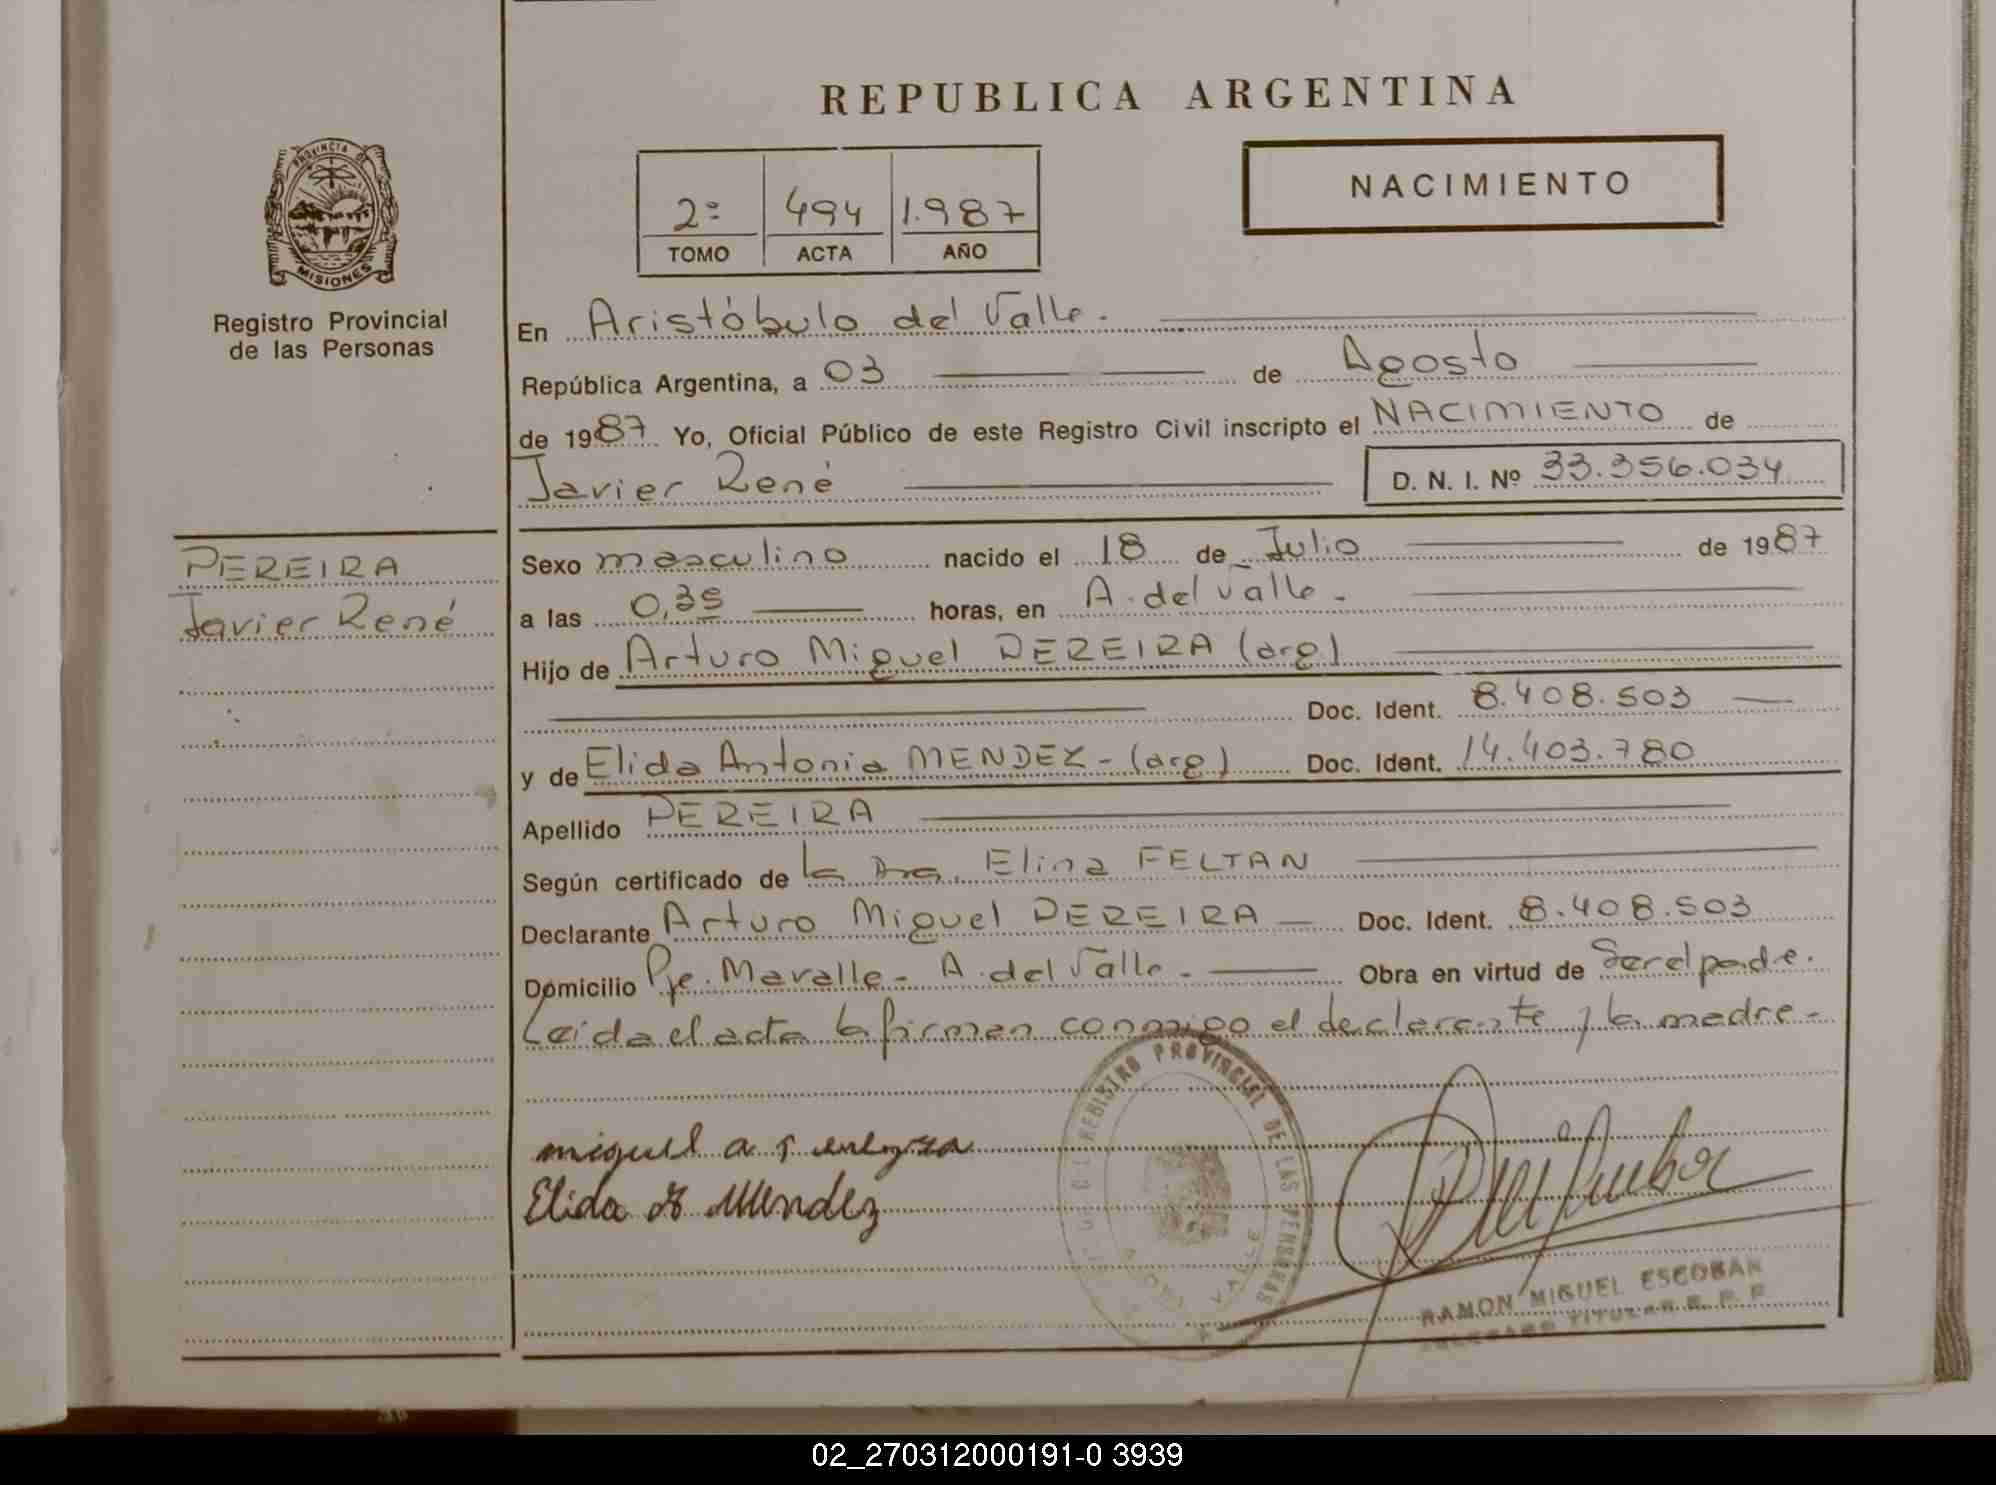 REPUBLICA ARGENTINA
PROVINCIA DE
MISIONES
Registro Provincial
de las Personas
2º 494 1.987
TOMO ACTA AÑO
NACIMIENTO
En Aristóbulo del Valle.
República Argentina, a 03 de Agosto
de 1987 Yo, Oficial Público de este Registro Civil inscripto el NACIMIENTO de
Javier René D. N. I. Nº 33.356.034
PEREIRA
Javier René
Sexo masculino nacido el 18 de Julio de 1987
a las 0,35 horas, en A. del Valle.
Hijo de Arturo Miguel PEREIRA (arg)
Doc. Ident. 8.408.503
y de Elida Antonia MENDEZ - (arg) Doc. Ident. 14.403.780
Apellido PEREIRA
Según certificado de la Dra. Elina FELTAN
Declarante Arturo Miguel PEREIRA Doc. Ident. 8.408.503
Domicilio Pje. Mavalle - A. del Valle - Obra en virtud de Ser el padre.
Leida el acta la firman conmigo el declarante y la madre -
REGISTRO PROVINCIAL DE LAS PERSONAS
VALLE
miguel a
Elida Mendez
RAMON MIGUEL ESCOBAR
TITULAR R. P. P.
02_270312000191-0 3939